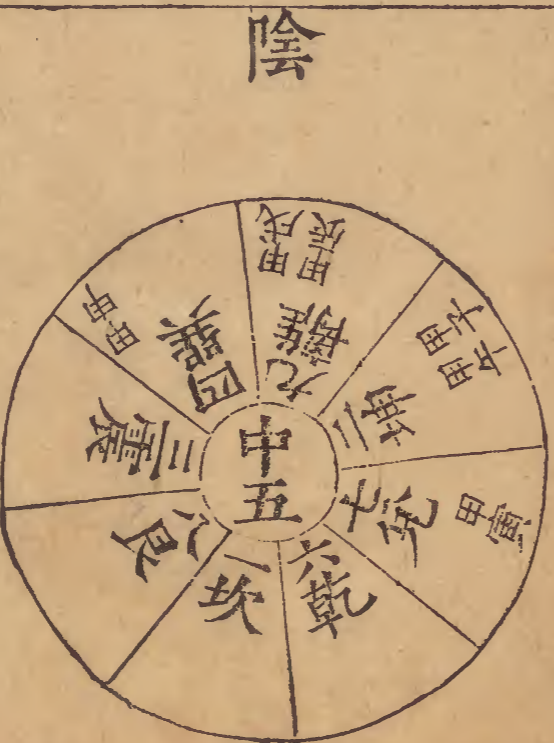 陰
中五
九離
甲戌
甲辰
二坤
甲子
甲午
七兌
甲寅
六乾
一坎
八艮
三震
四巽
甲申